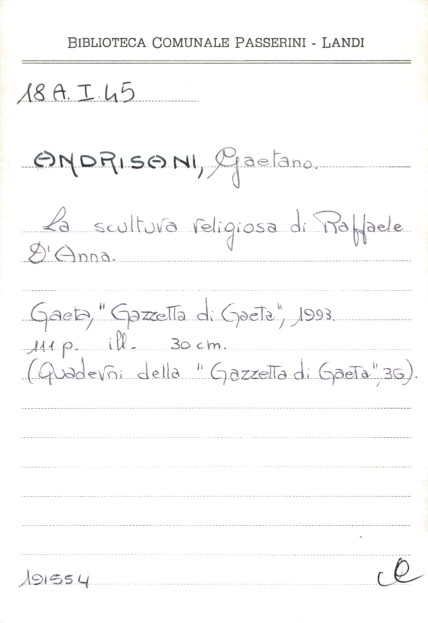 BIBLIOTECA COMUNALE PASSERINI - LANDI
18 A. I. 45
ANDRISANI, Gaetano.
La scultura religiosa di Raffaele
D'Anna.
Gaeta, "Gazzetta di Gaeta", 1993.
111 p. ill. 30 cm.
(Quaderni della "Gazzetta di Gaeta", 36).
191554